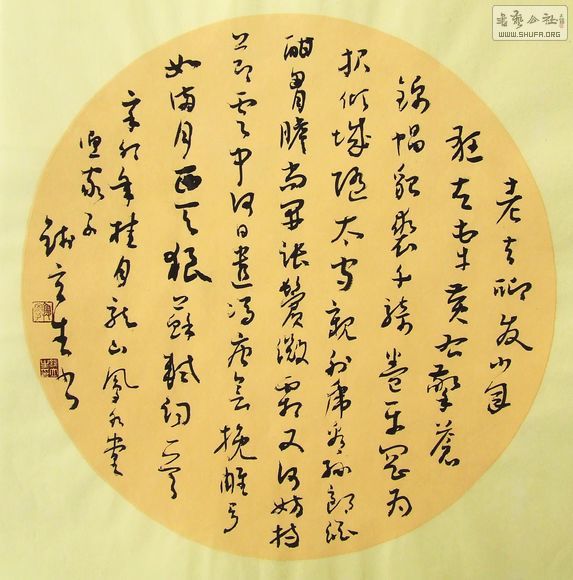 老夫聊发少年
狂左牵黄右擎苍
锦帽貂裘千骑卷平冈为
报倾城随太守亲射虎看孙郎酒
酣胸胆尚开张鬓微霜又何妨持
节云中何日遣冯唐会挽雕弓
如满月西天狼苏轼词一首
辛卯年桂月龙山凤水堂
生书
书艺公社
WWW.SHUFA.ORG